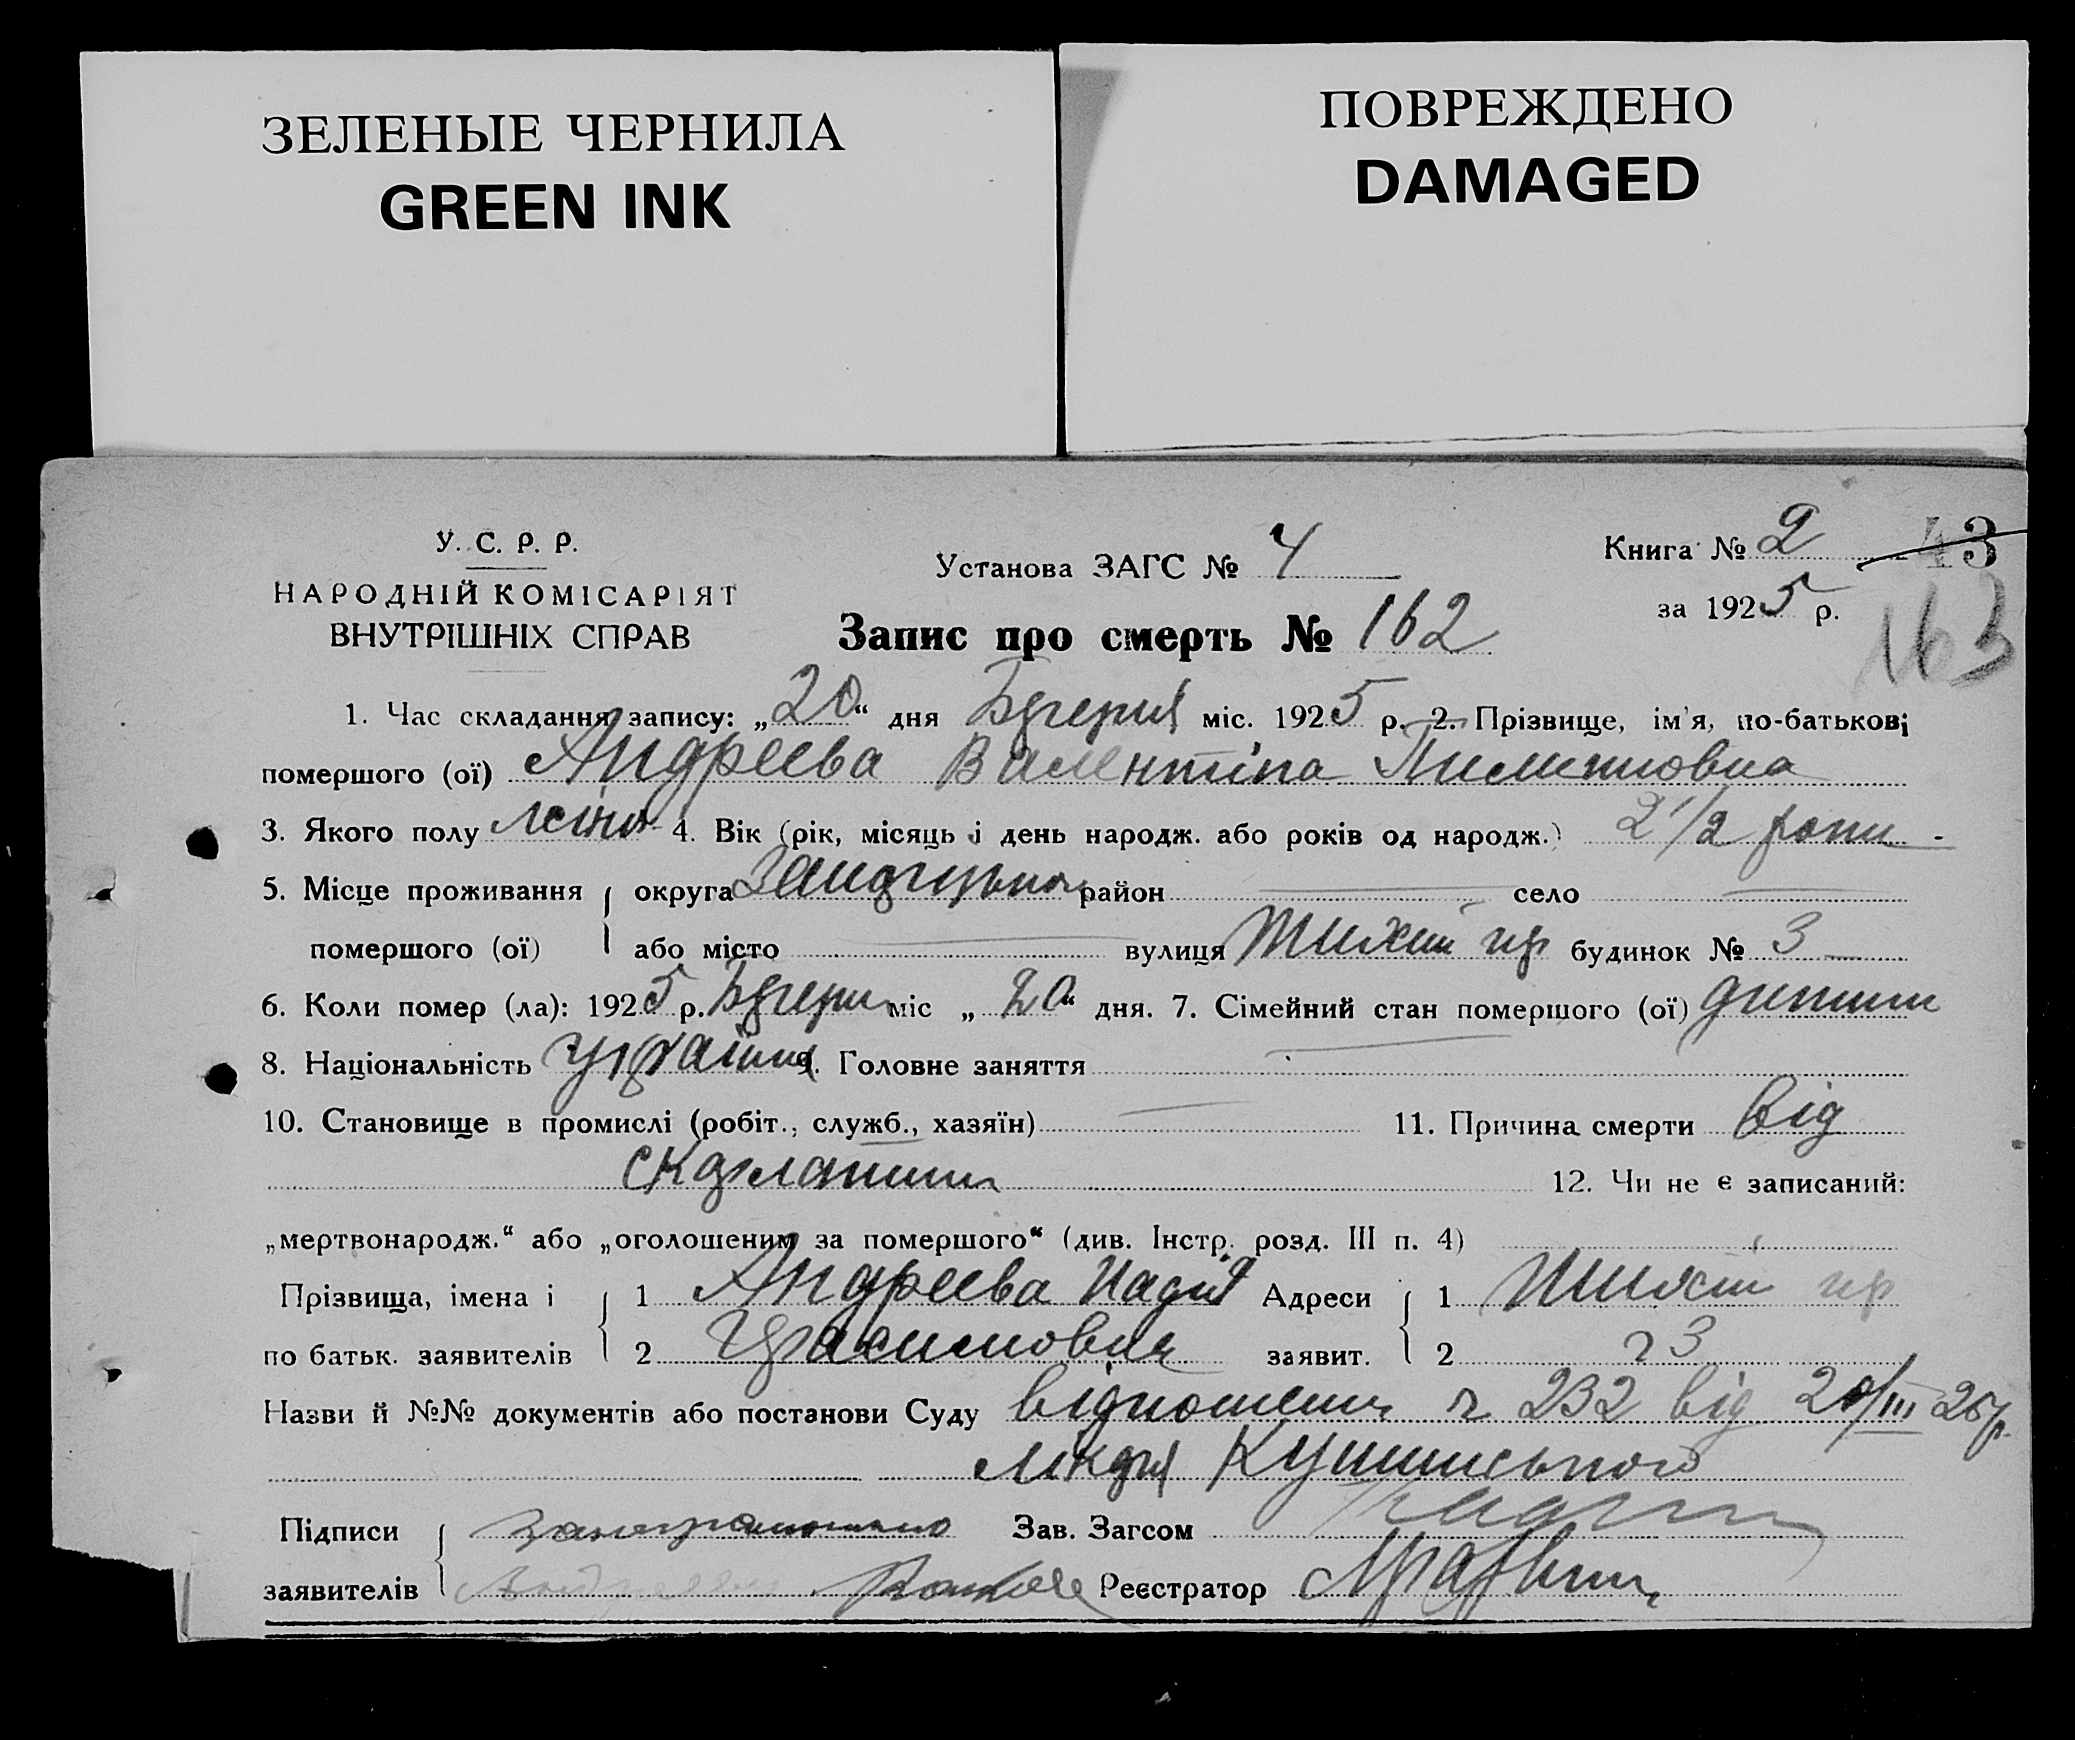 ЗЕЛЕНЫЕ ЧЕРНИЛА
GREEN INK
ПОВРЕЖДЕНО
DAMAGED
У. С. Р. Р.
НАРОДНІЙ КОМІСАРІЯТ
ВНУТРІШНІХ СПРАВ
Установа ЗАГС № 4
Книга № 2 43
за 1925 р.
163
Запис про смерть № 162
1. Час складання запису: „20“ дня міс. 1925 р. 2. Прізвище, ім'я, по-батькові
помершого (ої) Андреєва Валентіна Пилиповна
3. Якого полу жіно 4. Вік (рік, місяць і день народж. або років од народж.) 2 1/2 роки -
5. Місце проживання округа район село
помершого (ої) або місто вулиця Тихий пр будинок № 3
6. Коли помер (ла): 1925 р. міс „20“ дня. 7. Сімейний стан помершого (ої) дитина
8. Національність україн 9. Головне заняття
10. Становище в промислі (робіт., служб., хазяїн) 11. Причина смерти від
скарлатини 12. Чи не є записаний:
„мертвонародж.“ або „оголошеним за помершого“ (див. Інстр. розд. III п. 4)
Прізвища, імена і 1 Андреєва Надія Адреси 1 Тихий пр
по батьк. заявителів 2 Герасимовна заявит. 2 ч 3
Назви й №№ документів або постанови Суду відношення ч 232 від 20/III 25 р.
лікаря
Підписи Зав. Загсом
заявителів Реєстратор